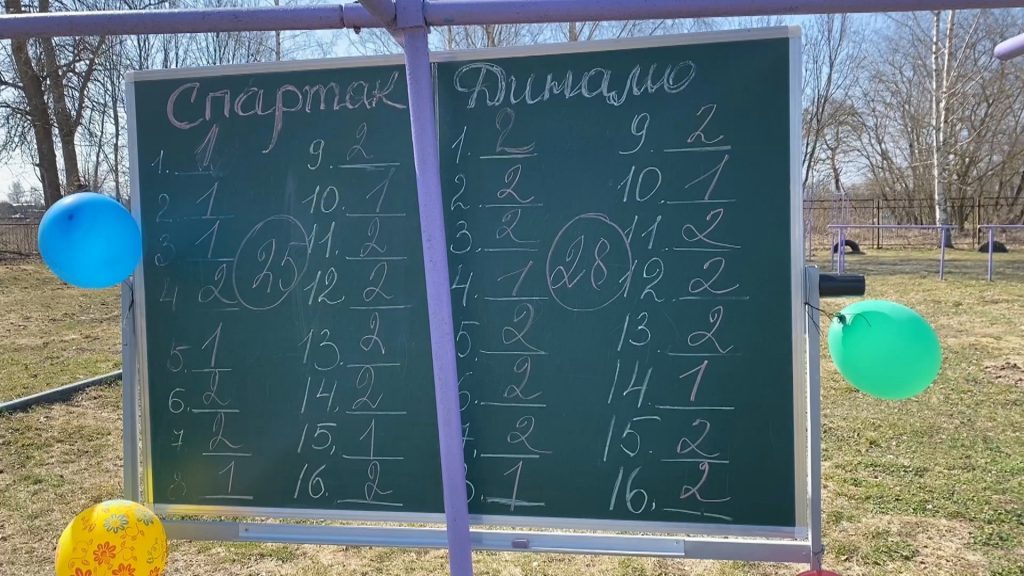 Спартак Динамо
1. 1 9. 2 1. 2 9. 2
2. 1 10. 1 2. 2 10. 1
3. 1 11. 2 3. 2 11. 2
25 28
4 2 12. 2 4. 1 12. 2
5. 1 13. 2 5. 2 13. 2
6. 2 14. 2 6. 2 14. 1
7 2 15. 1 7. 2 15. 2
8. 1 16. 2 8. 1 16. 2